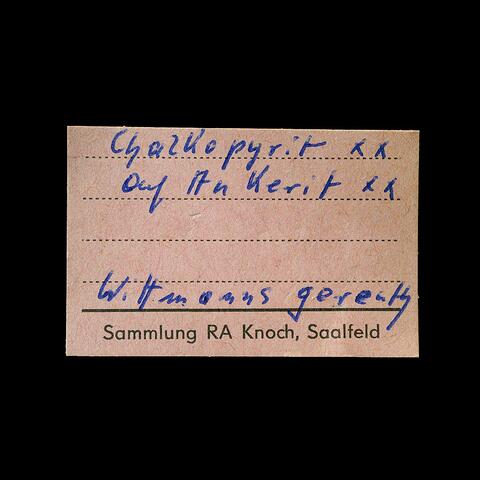 Chalkopyrit xx
auf Ankerit xx
Wittmannsgereuth
Sammlung RA Knoch, Saalfeld